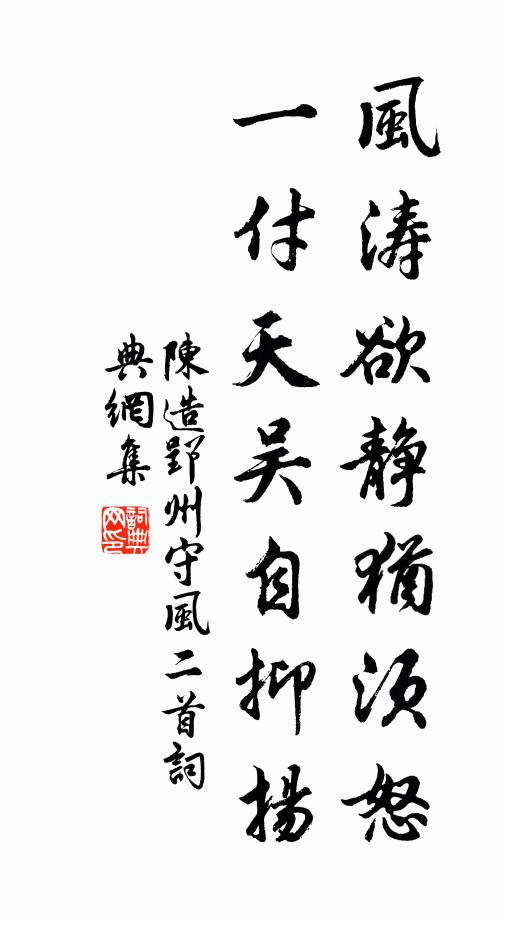 風涛欲静猶須怒
一付天吴自抑揚
陳造郢州守風二首詞
典網集
詞典
网印